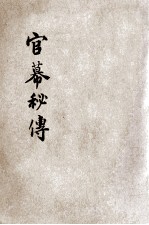 官幕秘傳